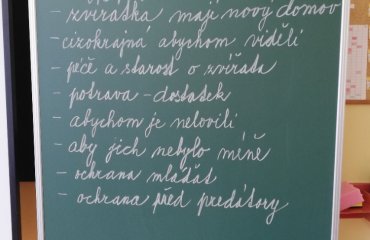 - zvířátka mají nový domov
- cizokrajná abychom viděli
- péče a starost o zvířata
- potrava - dostatek
- abychom je nelovili
- aby jich nebylo méně
- ochrana mláďat
- ochrana před predátory